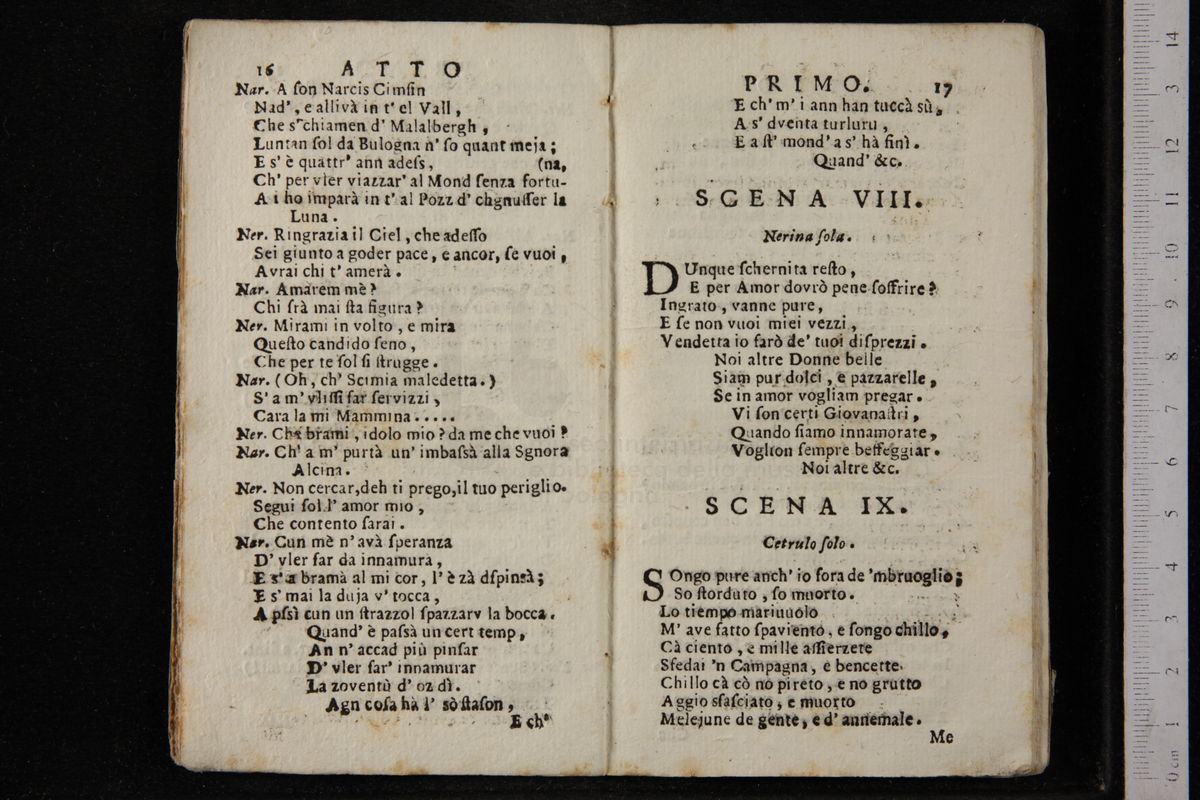 16 ATTO
Nar. A ſon Narcis Cimſin
Nad', e allivà in t' el Vall,
Che s' chiamen d' Malalbergh,
Luntan ſol da Bulogna n' ſo quant meja;
E s' è quattr' ann adeſs, (na,
Ch' per vler viazzar' al Mond ſenza fortu-
A i ho imparà in t' al Pozz d' chgnuſſer la
Luna.
Ner. Ringrazia il Ciel, che adeſſo
Sei giunto a goder pace, e ancor, ſe vuoi,
Avrai chi t' amerà.
Nar. Amarem mè?
Chi ſrà mai ſta figura?
Ner. Mirami in volto, e mira
Queſto candido ſeno,
Che per te ſol ſi ſtrugge.
Nar. (Oh, ch' Scimia maledetta.)
S' a m' vliſſi far ſervizzi,
Cara la mi Mammina.....
Ner. Che brami, idolo mio? da me che vuoi?
Nar. Ch' a m' purtà un' imbaſsà alla Sgnora
Alcina.
Ner. Non cercar, deh ti prego, il tuo periglio.
Segui ſol l' amor mio,
Che contento ſarai.
Nar. Cun mè n' avà ſperanza
D' vler far da innamurà,
E s' a bramà al mi cor, l' è zà dſpinsà;
E s' mai la duja v' tocca,
A pſsì cun un ſtrazzol ſpazzarv la bocca.
Quand' è paſsà un cert temp,
An n' accad più pinſar
D' vler far' innamurar
La zoventù d' oz dì.
Agn coſa hà l' sò ſtaſon,
E ch'
PRIMO. 17
E ch' m' i ann han tuccà sù,
A s' dventa turluru,
E a ſt' mond' a s' hà finì.
Quand' &c.
SCENA VIII.
Nerina ſola.
DUnque ſchernita reſto,
E per Amor dovrò pene ſoffrire?
Ingrato, vanne pure,
E ſe non vuoi miei vezzi,
Vendetta io farò de' tuoi diſprezzi.
Noi altre Donne belle
Siam pur dolci, e pazzarelle,
Se in amor vogliam pregar.
Vi ſon certi Giovanaſtri,
Quando ſiamo innamorate,
Voglion ſempre beffeggiar.
Noi altre &c.
SCENA IX.
Cetrulo ſolo.
SOngo pure anch' io fora de 'mbruoglio;
So ſtorduto, ſo muorto.
Lo tiempo mariuuolo
M' ave fatto ſpaviento, e ſongo chillo,
Cà ciento, e mille affierzete
Sfedai 'n Campagna, e bencette
Chillo cà cò no pireto, e no grutto
Aggio sfaſciato, e muorto
Melejune de gente, e d' annemale.
Me